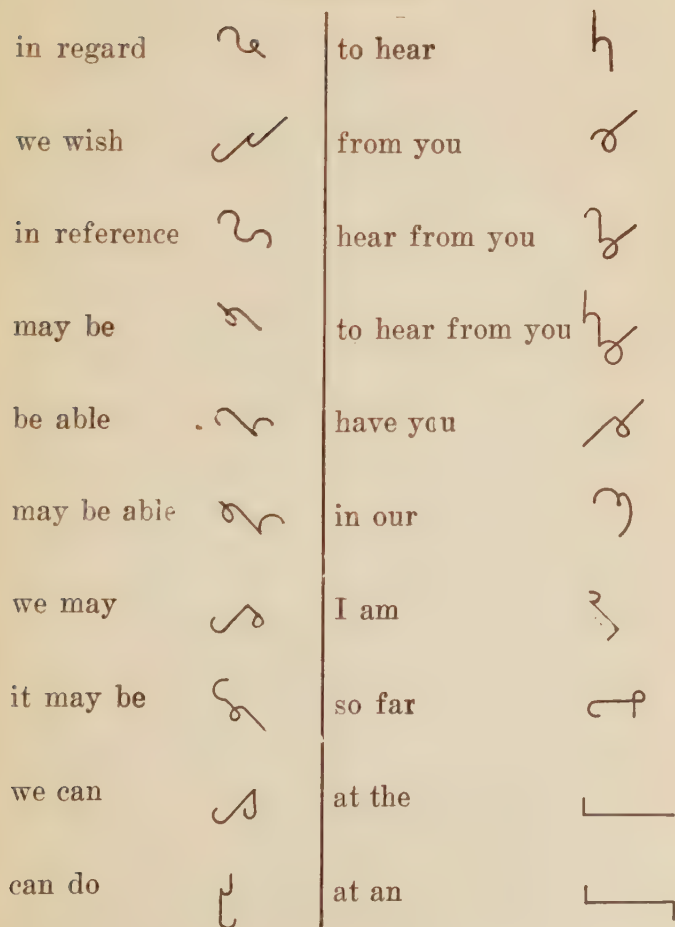 in regard
we wish
in reference
may be
be able
may be able
we may
it may be
we can
can do
to hear
from you
hear from you
to hear from you
have you
in our
I am
so far
at the
at an